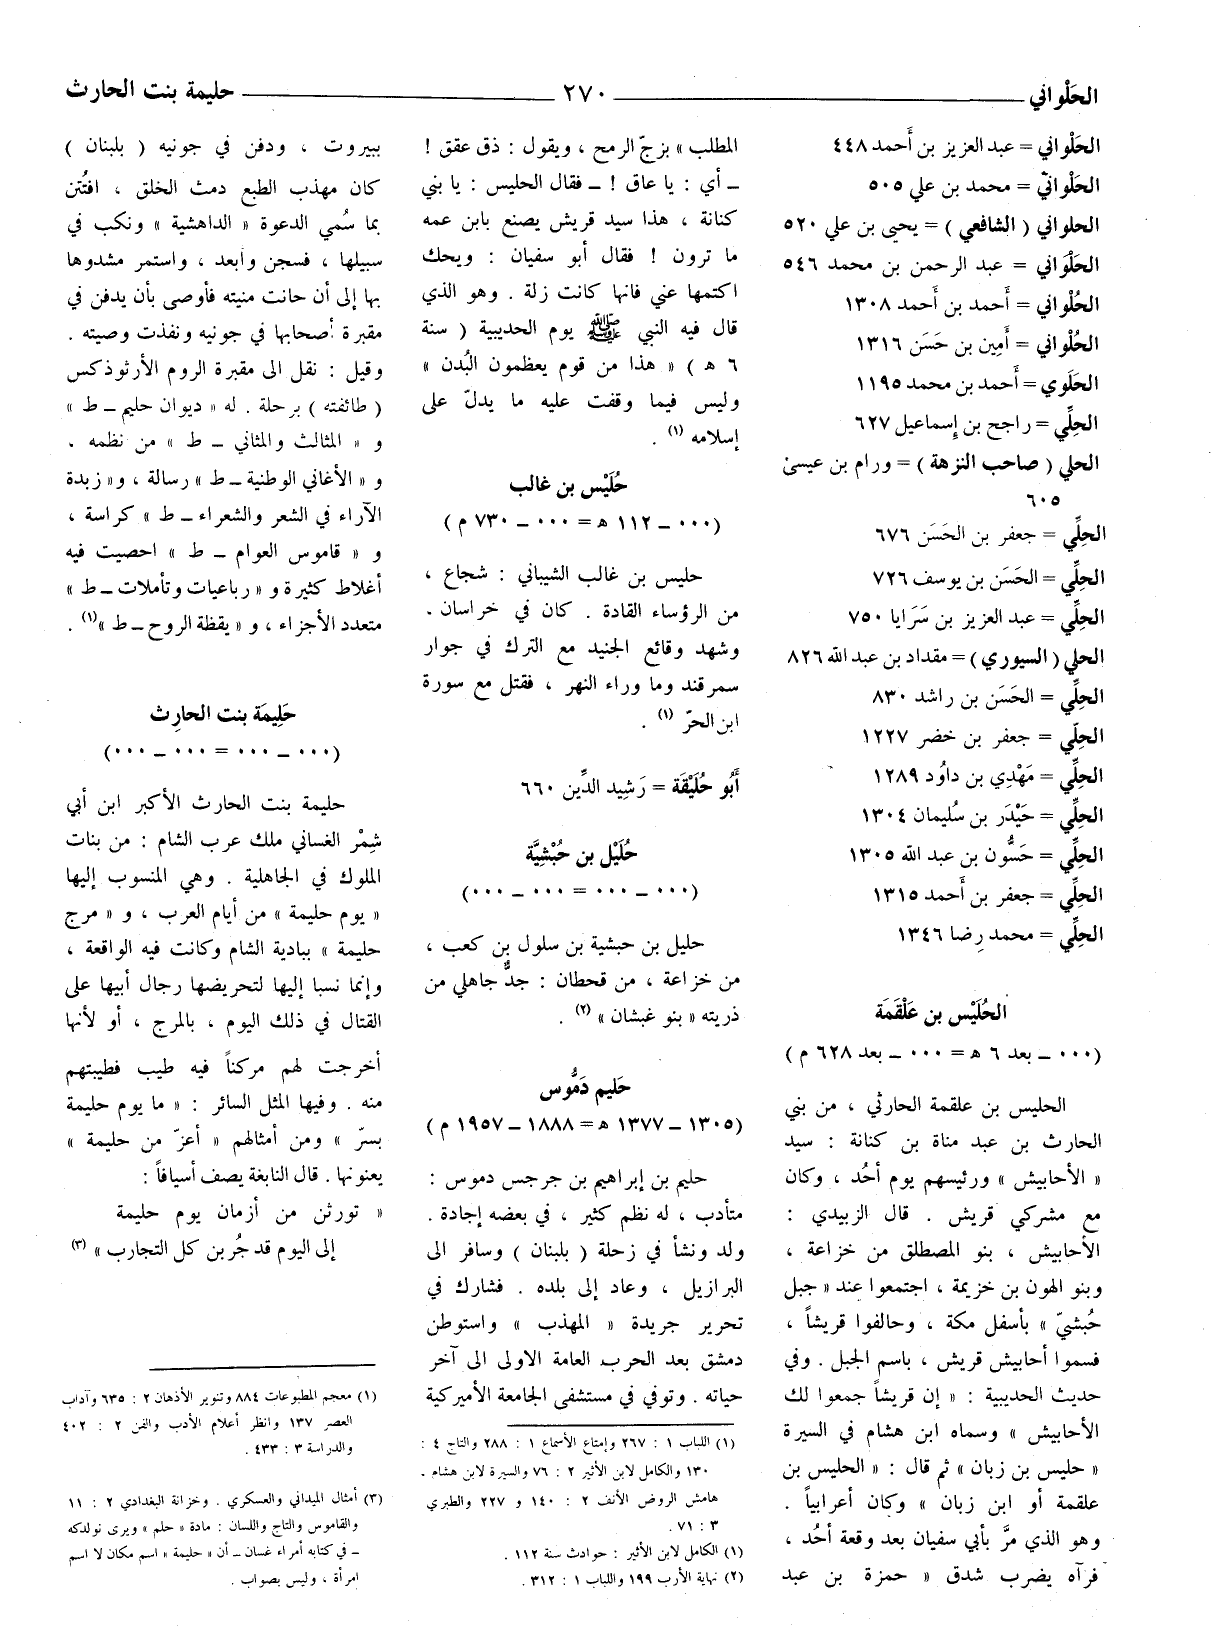 الحَلْواني ٢٧٠ حليمة بنت الحارث
الحَلْواني = عبد العزيز بن أَحمد ٤٤٨
الحَلْوانيّ = محمد بن علي ٥٠٥
الحلواني ( الشافعي ) = يحيى بن علي ٥٢٠
الحَلْوَاني = عبد الرحمن بن محمد ٥٤٦
الحُلْواني = أَحمد بن أَحمد ١٣٠٨
الحُلْواني = أَمِين بن حَسَن ١٣١٦
الحَلَوي = أَحمد بن محمد ١١٩٥
الحِلِّي = راجح بن إِسماعيل ٦٢٧
الحلي ( صاحب النزهة ) = ورام بن عيسىْ
٦٠٥
الحِلِّي = جعفر بن الحَسَن ٦٧٦
الحِلِّي = الحَسَن بن يوسف ٧٢٦
الحِلِّي = عبد العزيز بن سَرَايا ٧٥٠
الحلي ( السيوري ) = مقداد بن عبد الله ٨٢٦
الحِلِّي = الحَسَن بن راشد ٨٣٠
الحِلِّي = جعفر بن خضر ١٢٢٧
الحِلِّي = مَهْدِي بن داوُد ١٢٨٩
الحِلِّي = حَيْدَر بن سُليمان ١٣٠٤
الحِلِّي = حَسُّون بن عبد الله ١٣٠٥
الحِلِّي = جعفر بن أَحمد ١٣١٥
الحِلِّي = محمد رِضا ١٣٤٦
الحُلَيْس بن عَلْقَمَة
(٠٠٠ ــ بعد ٦ ه = ٠٠٠ ــ بعد ٦٢٨ م )
الحليس بن علقمة الحارثي ، من بني
الحارث بن عبد مناة بن كنانة : سيد
« الأحابيش » ورئيسهم يوم أحُد ، وكان
مع مشركي قريش . قال الزبيدي :
الأحابيش ، بنو المصطلق من خزاعة ،
وبنو الهون بن خزيمة ، اجتمعوا عند « جبل
حُبشيّ » بأسفل مكة ، وحالفوا قريشاً ،
فسموا أحابيش قريش ، باسم الجبل . وفي
حديث الحديبية : « إن قريشاً جمعوا لك
الأحابيش » وسماه ابن هشام في السيرة
« حليس بن زبان » ثم قال : « الحليس بن
علقمة أو ابن زبان » وكان أعرابياً .
وهو الذي مرَّ بأبي سفيان بعد وقعة أحُد ،
فرآه يضرب شدق « حمزة بن عبد
المطلب » بزجّ الرمح ، ويقول : ذق عقق !
ــ أي : يا عاق ! ــ فقال الحليس : يا بني
كنانة ، هذا سيد قريش يصنع بابن عمه
ما ترون ! فقال أبو سفيان : ويحك
اكتمها عني فانها كانت زلة . وهو الذي
قال فيه النبي ﷺ يوم الحديبية ( سنة
٦ ه ) « هذا من قوم يعظمون البُدن »
وليس فيما وقفت عليه ما يدلّ على
إسلامه (١) .
حُلَيْس بن غالب
(٠٠٠ ــ ١١٢ ه = ٠٠٠ ــ ٧٣٠ م )
حليس بن غالب الشيباني : شجاع ،
من الرؤساء القادة . كان في خراسان .
وشهد وقائع الجنيد مع الترك في جوار
سمرقند وما وراء النهر ، فقتل مع سورة
ابن الحرّ (١) .
أَبُو حُلَيْقَة = رَشِيد الدِّين ٦٦٠
حُلَيْل بن حُبْشِيَّة
(٠٠٠ ــ ٠٠٠ = ٠٠٠ ــ ٠٠٠)
حليل بن حبشية بن سلول بن كعب ،
من خزاعة ، من قحطان : جدٌّ جاهلي من
ذريته « بنو غبشان » (٢) .
حَليم دَمُّوس
(١٣٠٥ ــ ١٣٧٧ ه = ١٨٨٨ ــ ١٩٥٧ م )
حليم بن إبراهيم بن جرجس دموس :
متأدب ، له نظم كثير ، في بعضه إجادة .
ولد ونشأ في زحلة ( بلبنان ) وسافر الى
البرازيل ، وعاد إلى بلده . فشارك في
تحرير جريدة « المهذب » واستوطن
دمشق بعد الحرب العامة الاولى الى آخر
حياته . وتوفي في مستشفى الجامعة الأميركية
(١) اللباب ١ : ٢٦٧ وإمتاع الأسماع ١ : ٢٨٨ والتاج ٤ :
١٣٠ والكامل لابن الأثير ٢ : ٧٦ والسيرة لابن هشام .
هامش الروض الأنف ٢ : ١٤٠ و ٢٢٧ والطبري
٣ : ٧١ .
(١) الكامل لابن الأثير : حوادث سنة ١١٢ .
(٢) نهاية الأرب ١٩٩ واللباب ١ : ٣١٢ .
ببيروت ، ودفن في جونيه ( بلبنان )
كان مهذب الطبع دمث الخلق ، افتُتن
بما سُمي الدعوة « الداهشية » ونكب في
سبيلها ، فسجن وأبعد ، واستمر مشدوها
بها إلى أن حانت منيته فأوصى بأن يدفن في
مقبرة أصحابها في جونيه ونفذت وصيته .
وقيل : نقل الى مقبرة الروم الأرثوذكس
( طائفته ) برحلة . له « ديوان حليم ــ ط »
و « المثالث والمثاني ــ ط » من نظمه .
و « الأغاني الوطنية ــ ط » رسالة ، و« زبدة
الآراء في الشعر والشعراء ــ ط » كراسة ،
و « قاموس العوام ــ ط » احصيت فيه
أغلاط كثيرة و « رباعيات وتأملات ــ ط »
متعدد الأجزاء ، و « يقظة الروح ــ ط »(١) .
حَلِيمَة بنت الحارِث
(٠٠٠ ــ ٠٠٠ = ٠٠٠ ــ ٠٠٠)
حليمة بنت الحارث الأكبر ابن أبي
شِمْر الغساني ملك عرب الشام : من بنات
الملوك في الجاهلية . وهي المنسوب إليها
« يوم حليمة » من أيام العرب ، و « مرج
حليمة » ببادية الشام وكانت فيه الواقعة ،
وإنما نسبا إليها لتحريضها رجال أبيها على
القتال في ذلك اليوم ، بالمرج ، أو لأنها
أخرجت لهم مركناً فيه طيب فطيبتهم
منه . وفيها المثل السائر : « ما يوم حليمة
بسرّ » ومن أمثالهم « أعزّ من حليمة »
يعنونها . قال النابغة يصف أسيافاً :
« تورثن من أزمان يوم حليمة
إلى اليوم قد جُربن كل التجارب » (٣)
(١) معجم المطبوعات ٨٨٤ وتنوير الأذهان ٢ : ٦٣٥ وآداب
العصر ١٣٧ وانظر أعلام الأدب والفن ٢ : ٤٠٢
والدراسة ٣ : ٤٣٣ .
(٣) أمثال الميداني والعسكري . وخزانة البغدادي ٢ : ١١
والقاموس والتاج واللسان : مادة « حلم » ويرى نولدكه
ــ في كتابه أمراء غسان ــ أن « حليمة » اسم مكان لا اسم
امرأة ، وليس بصواب .